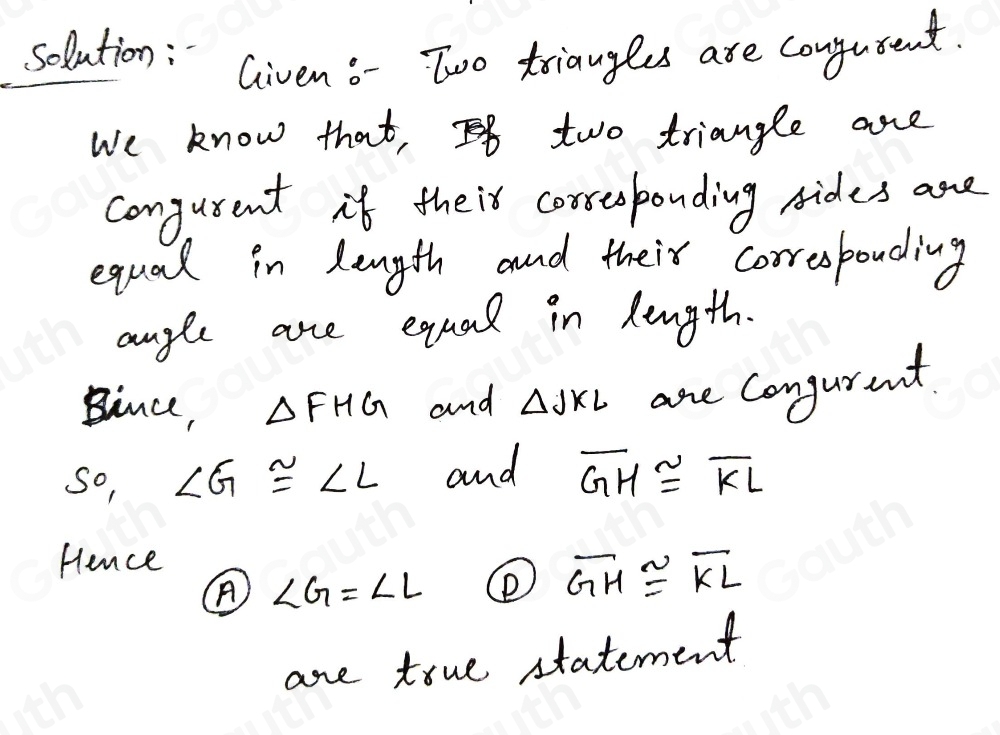 Solution :-
Given :- Two triangles are congurent.
We know that, If two triangle are
congurent if their corresponding sides are
equal in length and their corresponding
angle are equal in length.
Since, △FHG and △JKL are Congurent.
So, ∠G ≅ ∠L and \overline{GH} ≅ \overline{KL}
Hence
Ⓐ ∠G = ∠L Ⓓ \overline{GH} ≅ \overline{KL}
are true statement
Gauth